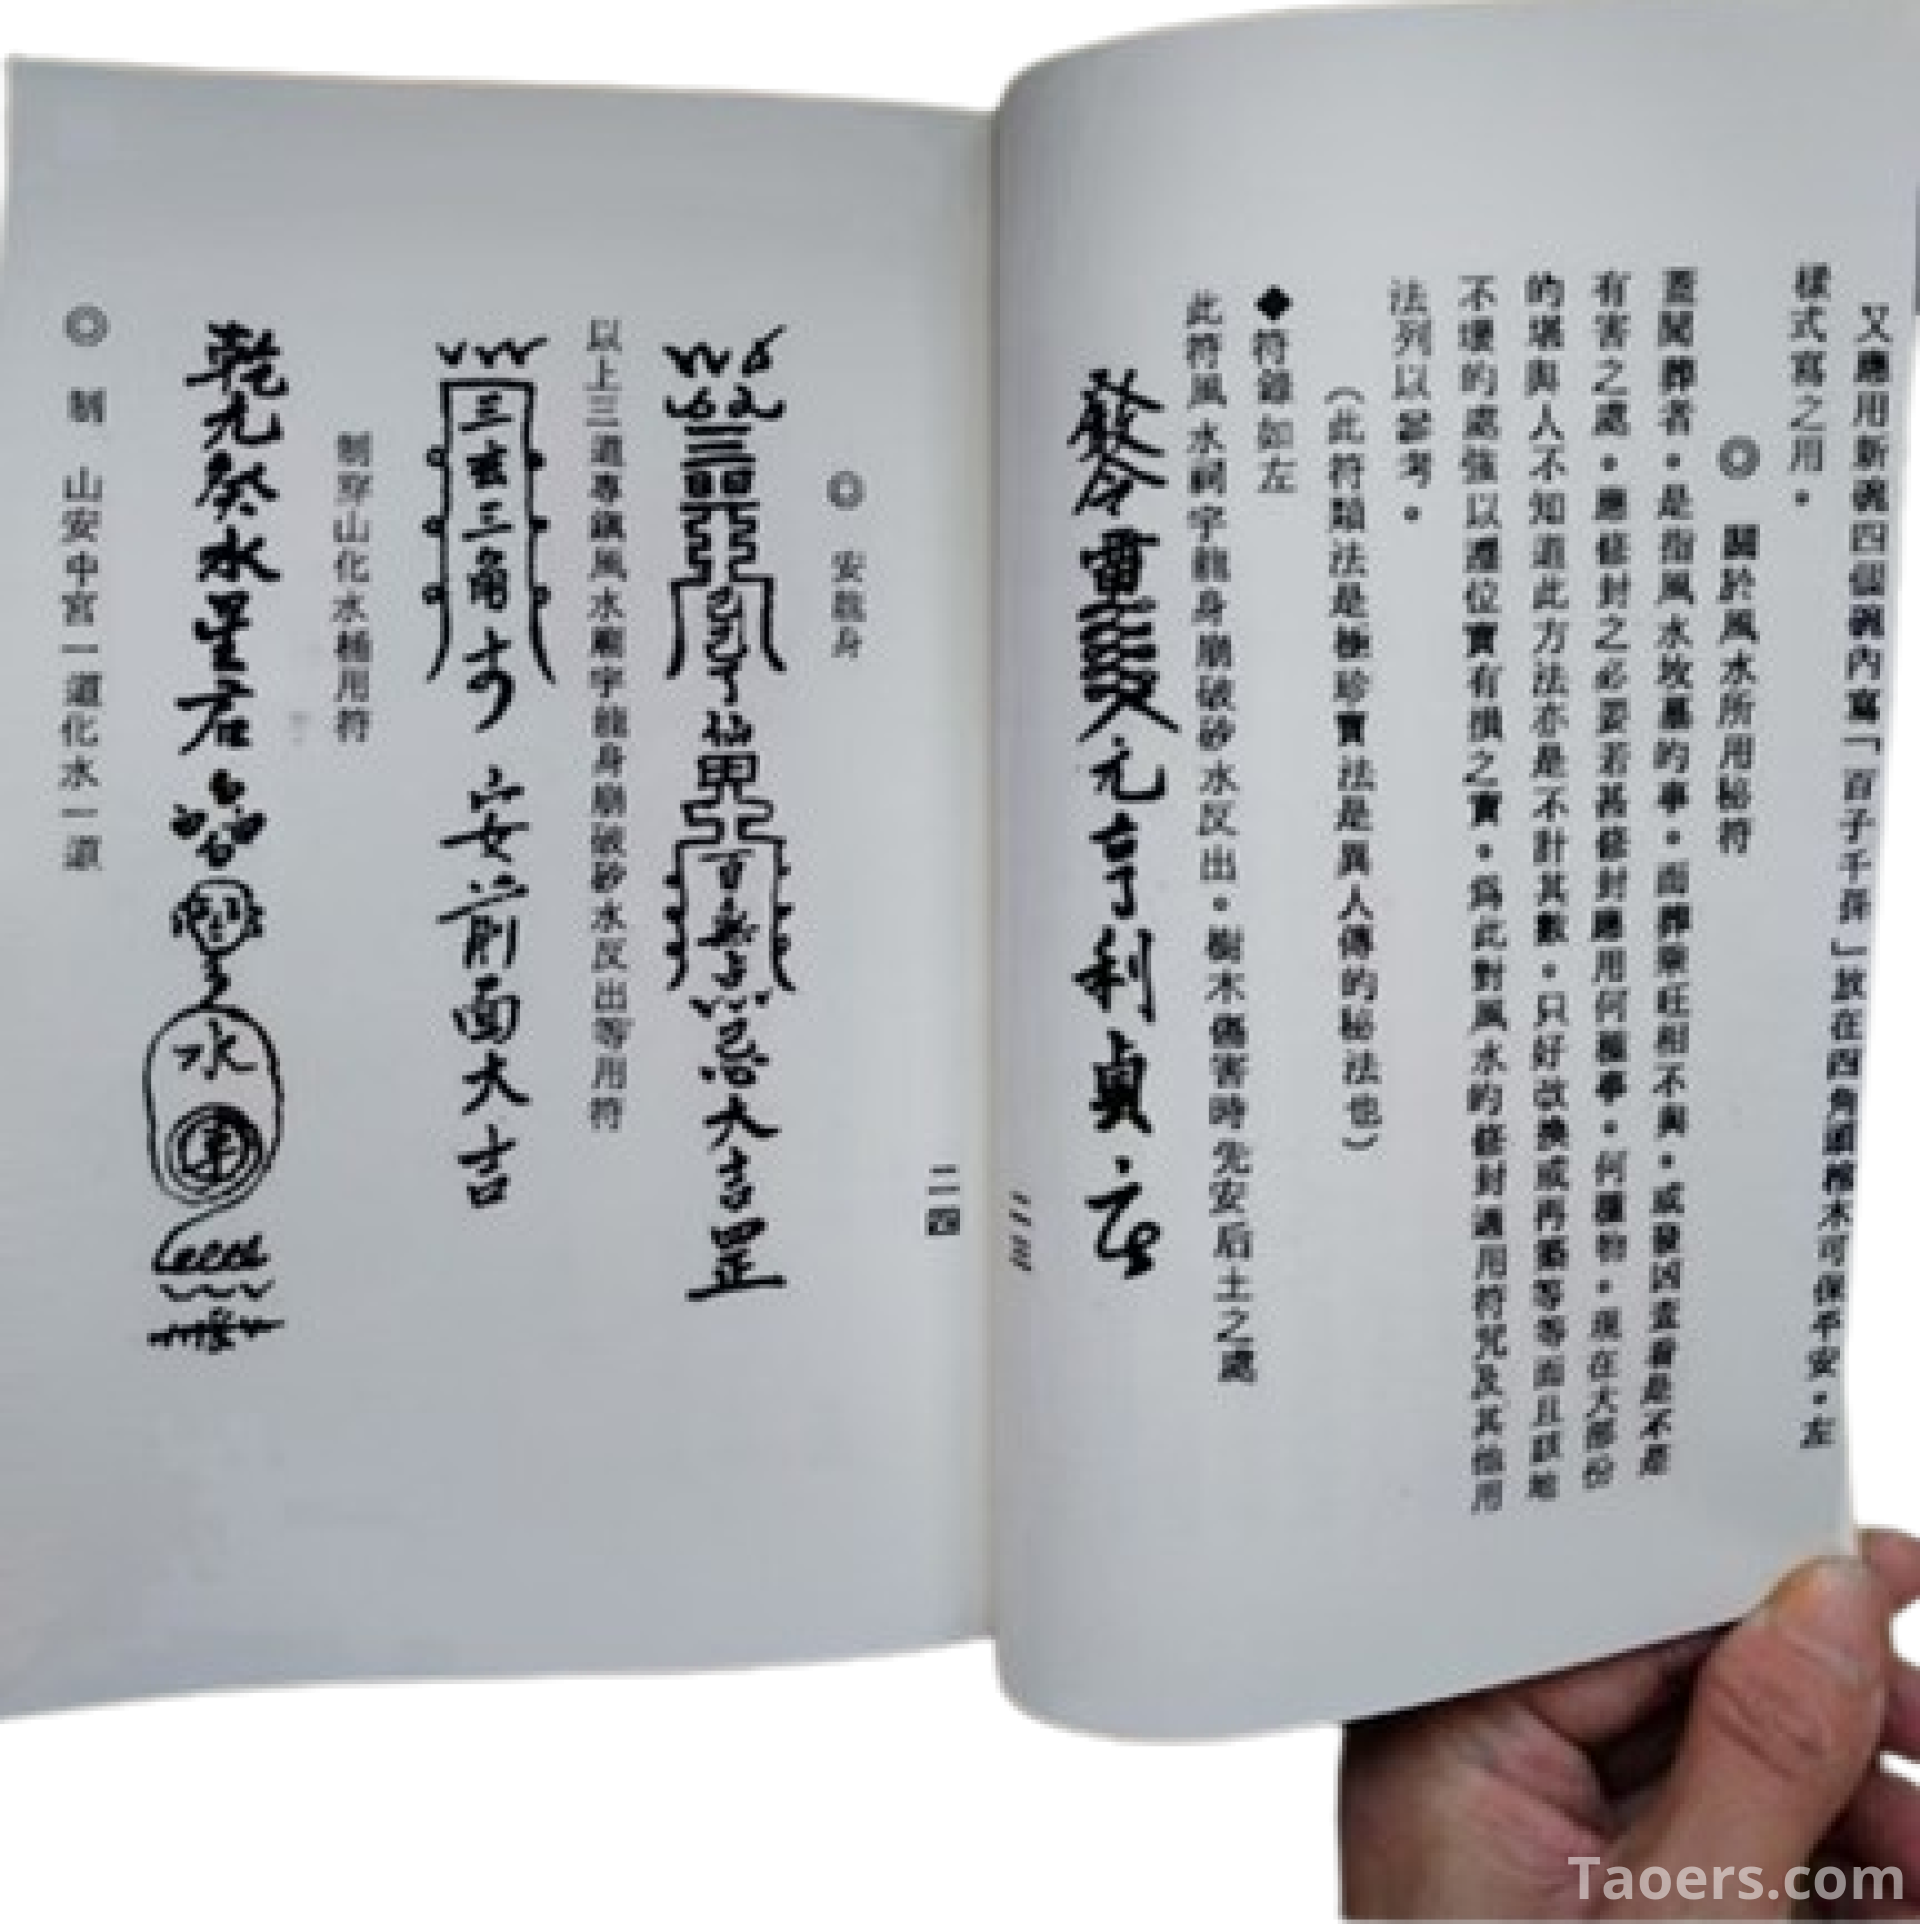 又應用新碗四個碗內寫「百子千孫」放在四角頭橙木可保平安。左
樣式寫之用。
◎ 關於風水所用秘符
蓋聞葬者。是指風水坟墓的事。而葬乘旺相不與。或發凶查看是不是
有害之處。應修封之必要若甚修封應用何種事。何種物。現在大部份
的堪輿人不知道此方法亦是不計其數。只好改換或再築等等而且該地
不壞的處強以遷位實有損之實。為此對風水的修封適用符咒及其他用
法列以參考。
(此符類法是極珍寶法是異人傳的秘法也)
◆符錄如左
此符風水祠宇龍身崩破砂水反出。樹木傷害時先安后土之處
發令雷 元亨利貞
二四
◎ 安龍身
大吉罡
以上三道專鎮風水廟宇龍身崩破砂水反出等用符
三玄三角 安前面大吉
制穿山化水桶用符
乾元癸水星君 水
◎ 制 山安中宮一道化水一道
Taoers.com